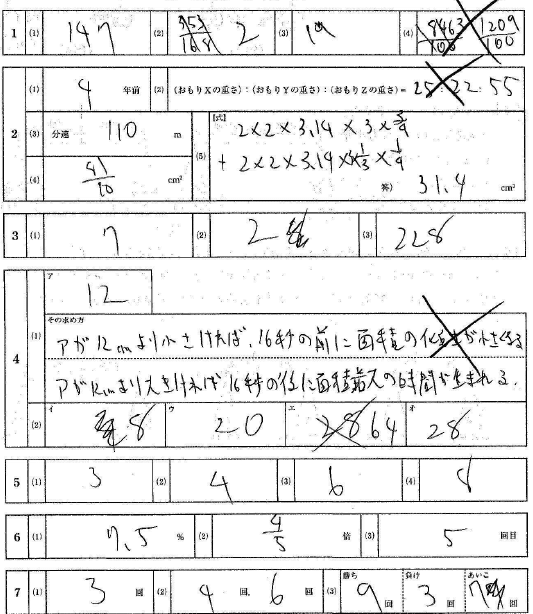 1 (1) 147 (2) 353/168 2 (3) 19 (4) 8463/100 1209/100
2 (1) 4 年前 (2) (おもりXの重さ):(おもりYの重さ):(おもりZの重さ)= 25:22:55
(3) 分速 110 m (5) 【式】 2×2×3.14×3×3/4
+ 2×2×3.14× 1/3 ×1/4
(4) 41/10 cm² 答) 31.4 cm²
3 (1) 7 (2) 2 (3) 228
4 (1) ア 12
その求め方
アが12cmより小さければ、16秒の前に面積の が小さくなる
アが12cmより大きければ16秒の後に面積最大の時間が生まれる.
(2) イ 8 ウ 20 エ 28 64 オ 28
5 (1) 3 (2) 4 (3) 6 (4) 8
6 (1) 7.5 % (2) 4/5 倍 (3) 5 回目
7 (1) 3 回 (2) 4 回, 6 回 (3) 勝ち 9 回 負け 3 回 あいこ 7 回